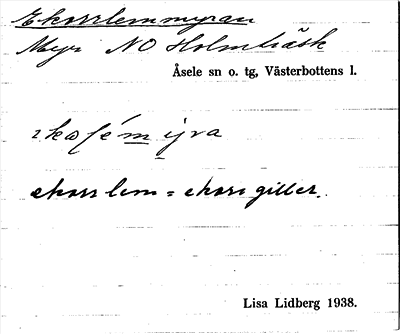 Ekorrlemmyran
Myr NO Holmträsk
Åsele sn o. tg, Västerbottens l.
ekorrlem = ekorrgiller.
Lisa Lidberg 1938.